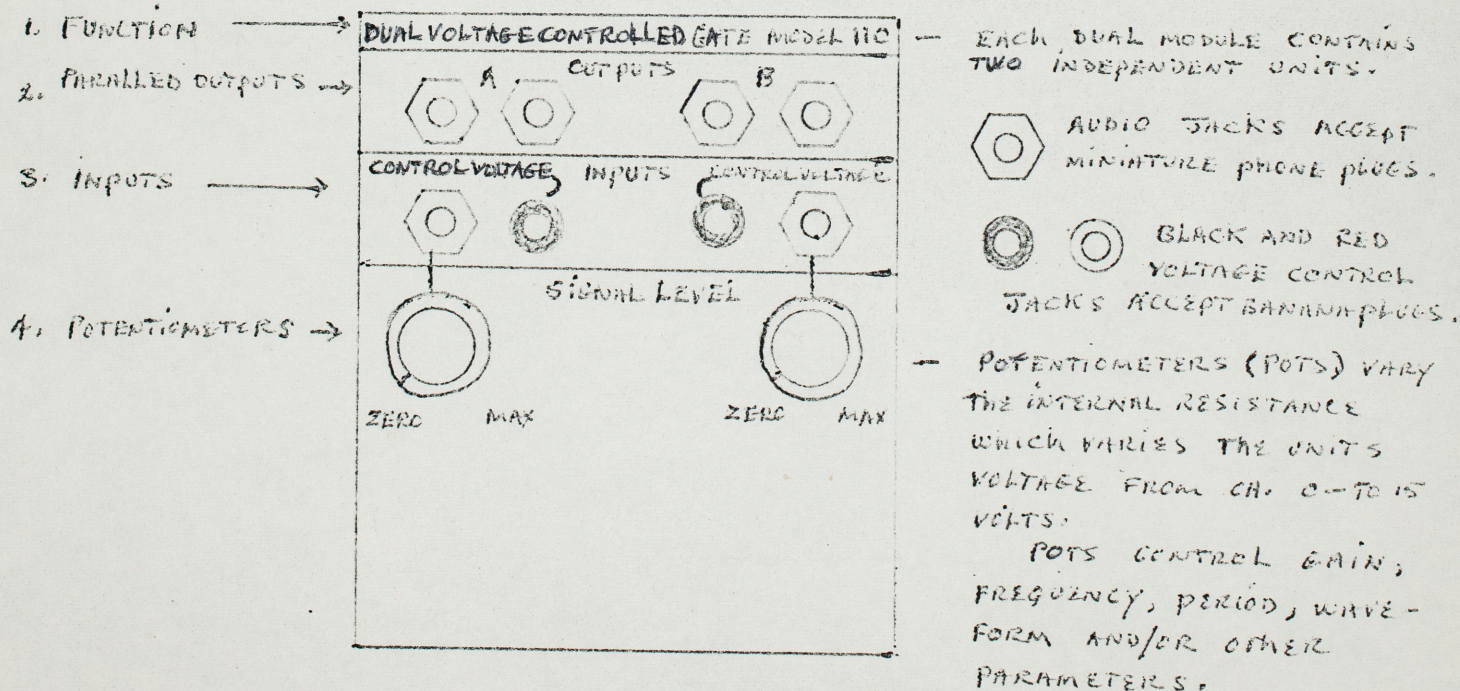 1. FUNCTION
2. PARALLED OUTPUTS
3. INPUTS
4. POTENTIOMETERS
DUAL VOLTAGE CONTROLLED GATE MODEL 110
OUTPUTS
A B
CONTROL VOLTAGE INPUTS CONTROL VOLTAGE
SIGNAL LEVEL
ZERO MAX ZERO MAX
— EACH DUAL MODULE CONTAINS
TWO INDEPENDENT UNITS.
AUDIO JACKS ACCEPT
MINIATURE PHONE PLUGS.
BLACK AND RED
VOLTAGE CONTROL
JACKS ACCEPT BANANA PLUGS.
— POTENTIOMETERS (POTS) VARY
THE INTERNAL RESISTANCE
WHICH VARIES THE UNITS
VOLTAGE FROM CA. 0 - TO 15
VOLTS.
POTS CONTROL GAIN,
FREQUENCY, PERIOD, WAVE-
FORM AND/OR OTHER
PARAMETERS.